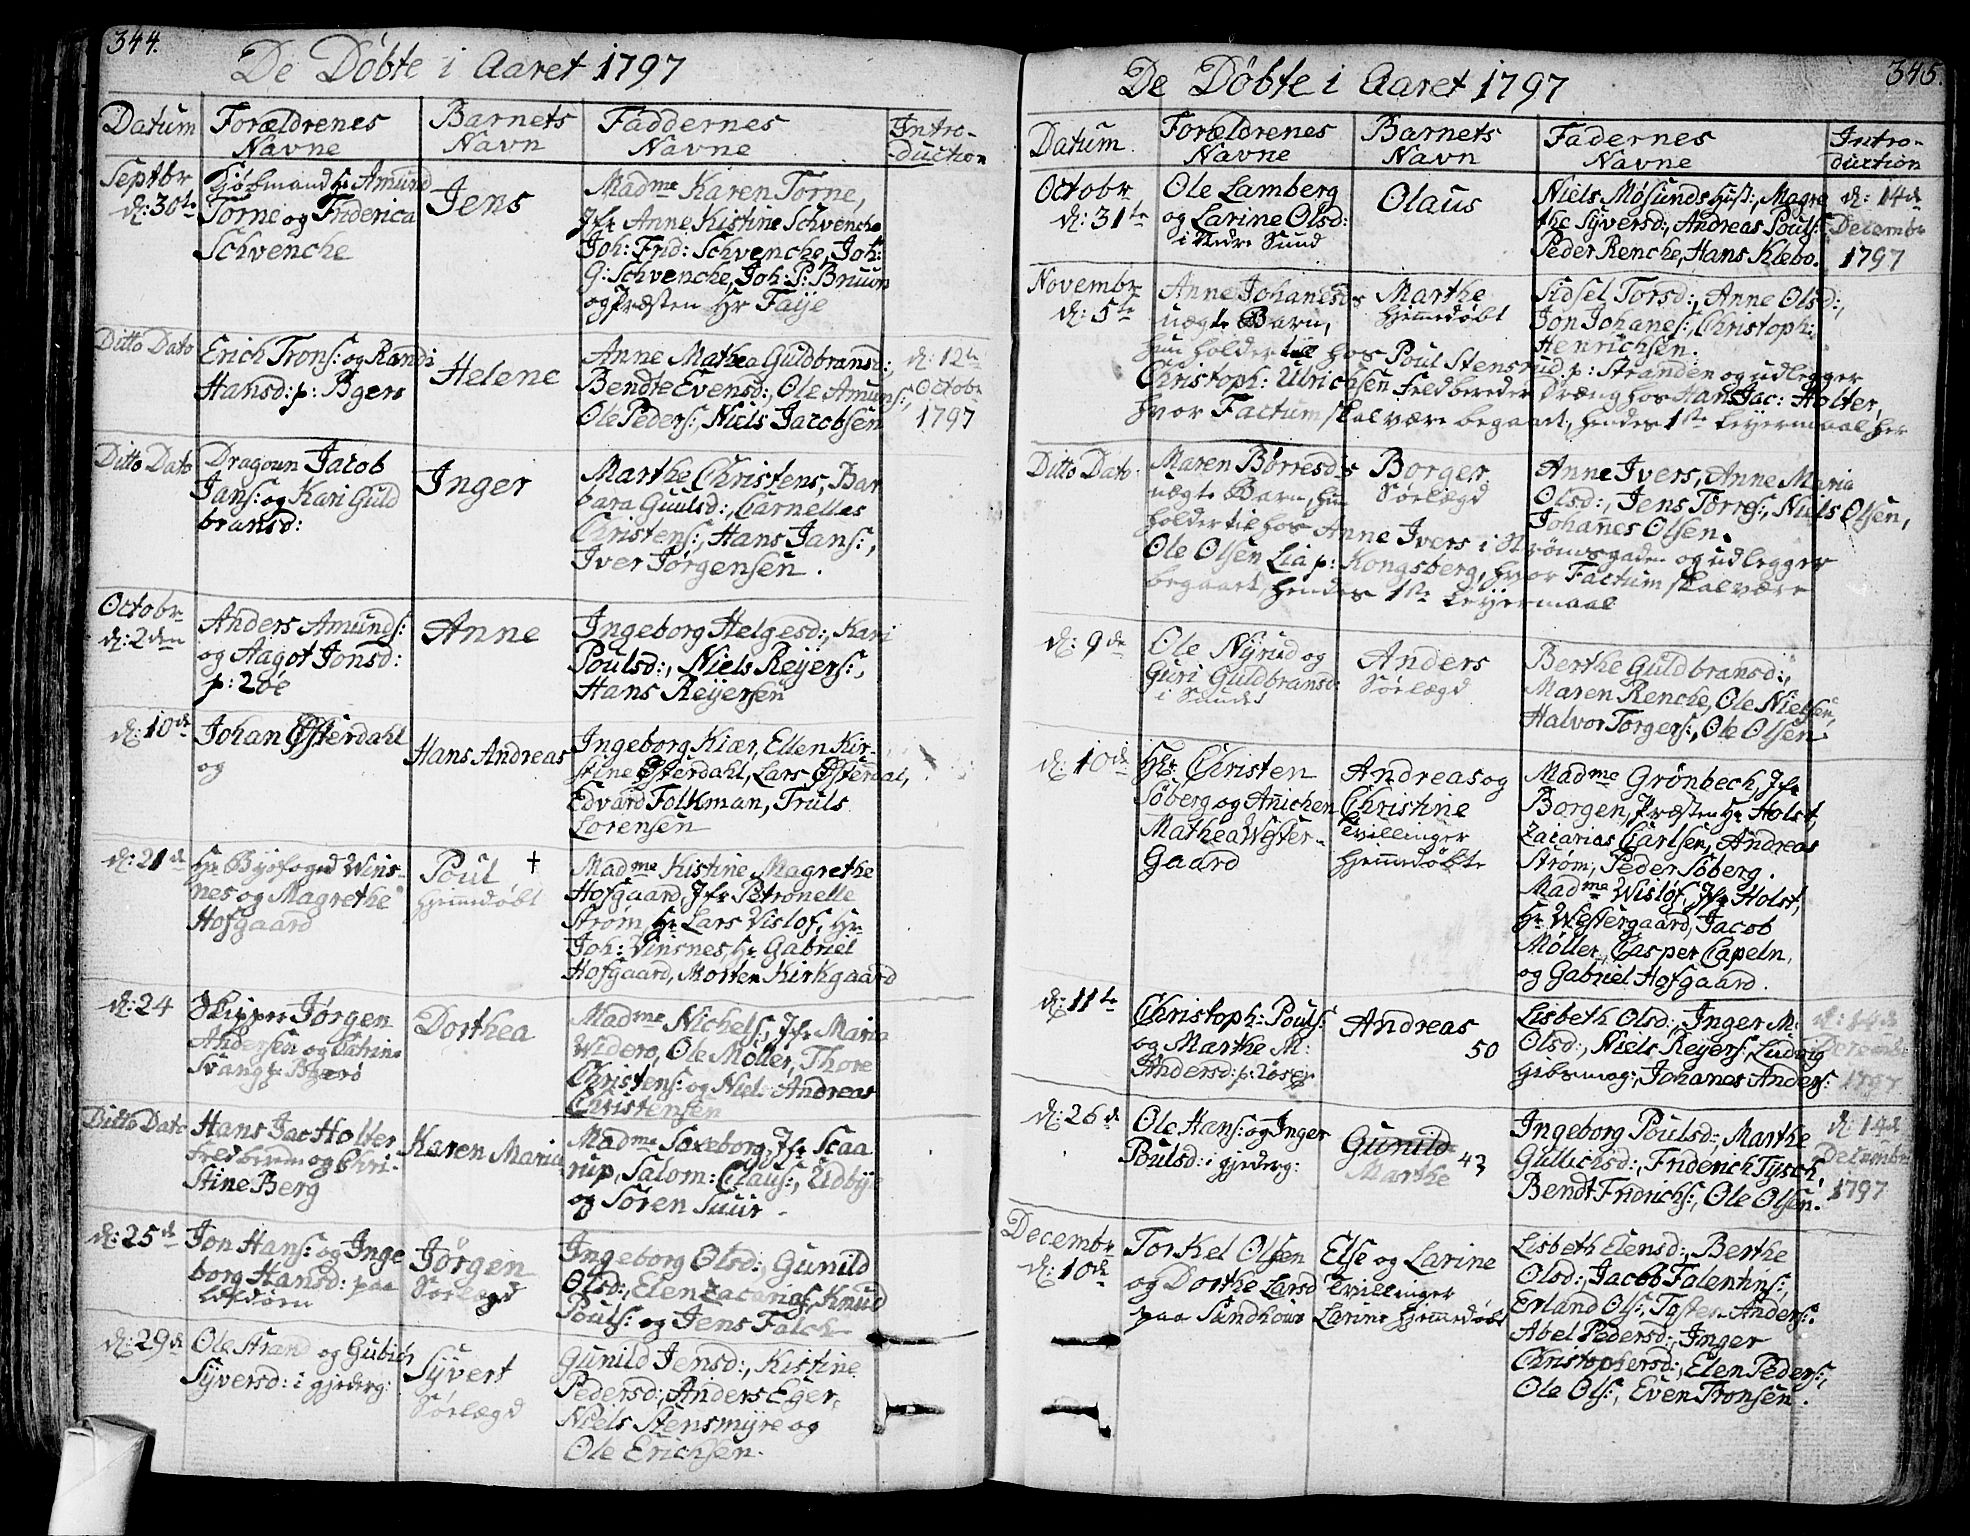 344.
De Döbte i Aaret 1797
Datum
Forældrenes
Navne
Barnets
Navn
Faddernes
Navne
Intro-
duction
Septbr
d: 30te
Kjöbmand Hr Amund
Torne og Friderica
Schvencke
Jens
Madme Karen Torne,
Jfr Anne Kistine Schvencke
Joh: Frid: Schvencke, Joh:
G: Schvencke, Joh: P: Bruun
og Præsten Hr Faye
Ditto Dato
Erich Trons: og Randi
Hansd: p:
Helene
Anne Mathea Guldbransd:,
Bendte Evensd:, Ole Amuns:,
Ole Peders:, Niels Jacobsen
d: 12te
Octobr
1797
Ditto Dato
Dragoun Jacob
Jans: og Kari Guld
bransd:
Inger
Marthe Christens, Bar
bara Guulsd:, Carnelles
Christens:, Hans Jans:,
Iver Jörgensen.
Octobr
d: 2den
Anders Amunds:
og Aagot Jonsd:
p:
Anne
Ingeborg Helgesd:, Kari
Poulsd:, Niels Reyers:,
Hans Reyersen
d: 10de
Johan Østerdahl
og
Hans Andreas
Ingeborg Kiær, Ellen Kir-
stine Østerdahl, Lars Østerdal,
Edvard Folkman, Truls
Lorensen
d: 21de
Hr Byefoged Wins-
nes og Magrethe
Hofgaard
Poul †
Hiemmedöbt
Madme Kistine Magrethe
Hofgaard, Jfr Petronelle
Ström, Hr Lars Vislof, Hr
Joh: Vinsnes, Hr Gabriel
Hofgaard, Morten Kirkgaard
d: 24
Skipper Jörgen
Andersen og Catrine
Svang
Dorthea
Madme Nichels:, Jfr Maria
Widerö, Ole Möller, Thore
Christens: og Niels Andreas
Christensen
Ditto Dato
Hans Jac Holter
Feldbereder og Chri-
stine Berg
Karen Maria
Madme Saxeborg, Jfr Scaa
rup, Salom: Claus:, Udbye
og Sören Suur.
d: 25de
Jon Hans: og Inge
borg Hansd: paa
Jörgen
Sörlægd
Ingeborg Olsd:, Gunild
Olsd:, Elen Zacarias, Knud
Pouls: og Jens Falch
d: 29de
Ole Strand og Gubiör
Syversd: i gjederg:
Syvert
Sörlægd
Gunild Jensd:, Kistine
Pedersd:, Anders Eger,
Niels Stensmyre og
Ole Erichsen.
345.
De Døbte i Aaret 1797
Datum
Forældrenes
Navne
Barnets
Navn
Fadernes
Navne
Intro-
duction
Octobr
d: 31te
Ole Lamberg
og Larine Olsd:
i Nedre Sund
Olaus
Niels Mösunds Hust: Magre
the Syversd:, Andreas Pouls:
Peder Rencke, Hans Klebo.
d: 14de
Decembr
1797
Novembr
d: 5te
Anne Johanesds
uægte Barn,
Marthe
Hjemmedöbt
Sidsel Torsd:, Anne Olsd:,
Jon Johanes:, Christoph:
Henrichsen.
hun holder til hos Poul Stensrud p: Stranden og udlegger
Christoph: Ulrichsen Feldbereder Dræng hos Hans Jac: Holter,
hvor Factum skal være begaaet, hendes 1ste Leyermaal her
Ditto Dato
Maren Börresds
uægte Barn, hun
Borger
Sörlægd
Anne Ivers, Anne Maria
Olsd:, Jens Torres:, Niels Olsen,
Johanes Olsen.
holder til hos Anne Ivers i Strömsgaden og udlegger
Ole Olsen Lia p: Kongsberg, hvor Factum skal være
begaaet, hendes 1ste Leyermaal
d: 9de
Ole Nyrud og
Guri Guldbransd:
i Sundet
Anders
Sörlægd
Berthe Guldbransd:,
Maren Rencke, Ole Nielsen,
Halvor Torgers:, Ole Olsen
d: 10de
Hr Christen
Söberg og Anichen
Mathea Wester-
Gaard
Andreas og
Christine
Tvillinger
Hjemmedöbte
Madme Grönbech, Jfr
Borgen, Præsten Hr Holst,
Zacarias Carlsen, Andreas
Ström, Peder Söberg.
Madme Wislöf, Jfr Holst,
Hr Westergaard, Jacob
Möller, Casper Capeln,
og Gabriel Hofgaard.
d: 11te
Christoph: Pouls:
og Marthe M:
Andersd: p:
Andreas
50
Lisbeth Olsd:, Inger M:
Olsd:, Niels Reyers: Ludvig
Johanes Anders:
d: 14de
Decembr
1797
d: 26de
Ole Hans: og Inger
Poulsd: i gjederg:
Gunild
Marthe
43
Ingeborg Poulsd:, Marthe
Gullichsd:, Friderich Tysch,
Bendt Fridrichs:, Ole Olsen.
d: 14de
Decembr
1797
Decembr
d: 10de
Torkel Olsen
og Dorthe Larsd
paa Sundhour
Else og Larine
Tvillinger
Larine Hjemmedöbt
Lisbeth Elensd:, Berthe
Olsd:, Jacob Falentins:
Erland Ols:, Tosten Anders:
Abel Pedersd:, Inger
Christophersd:, Elen Peders:
Ole Ols:, Even Tronsen.